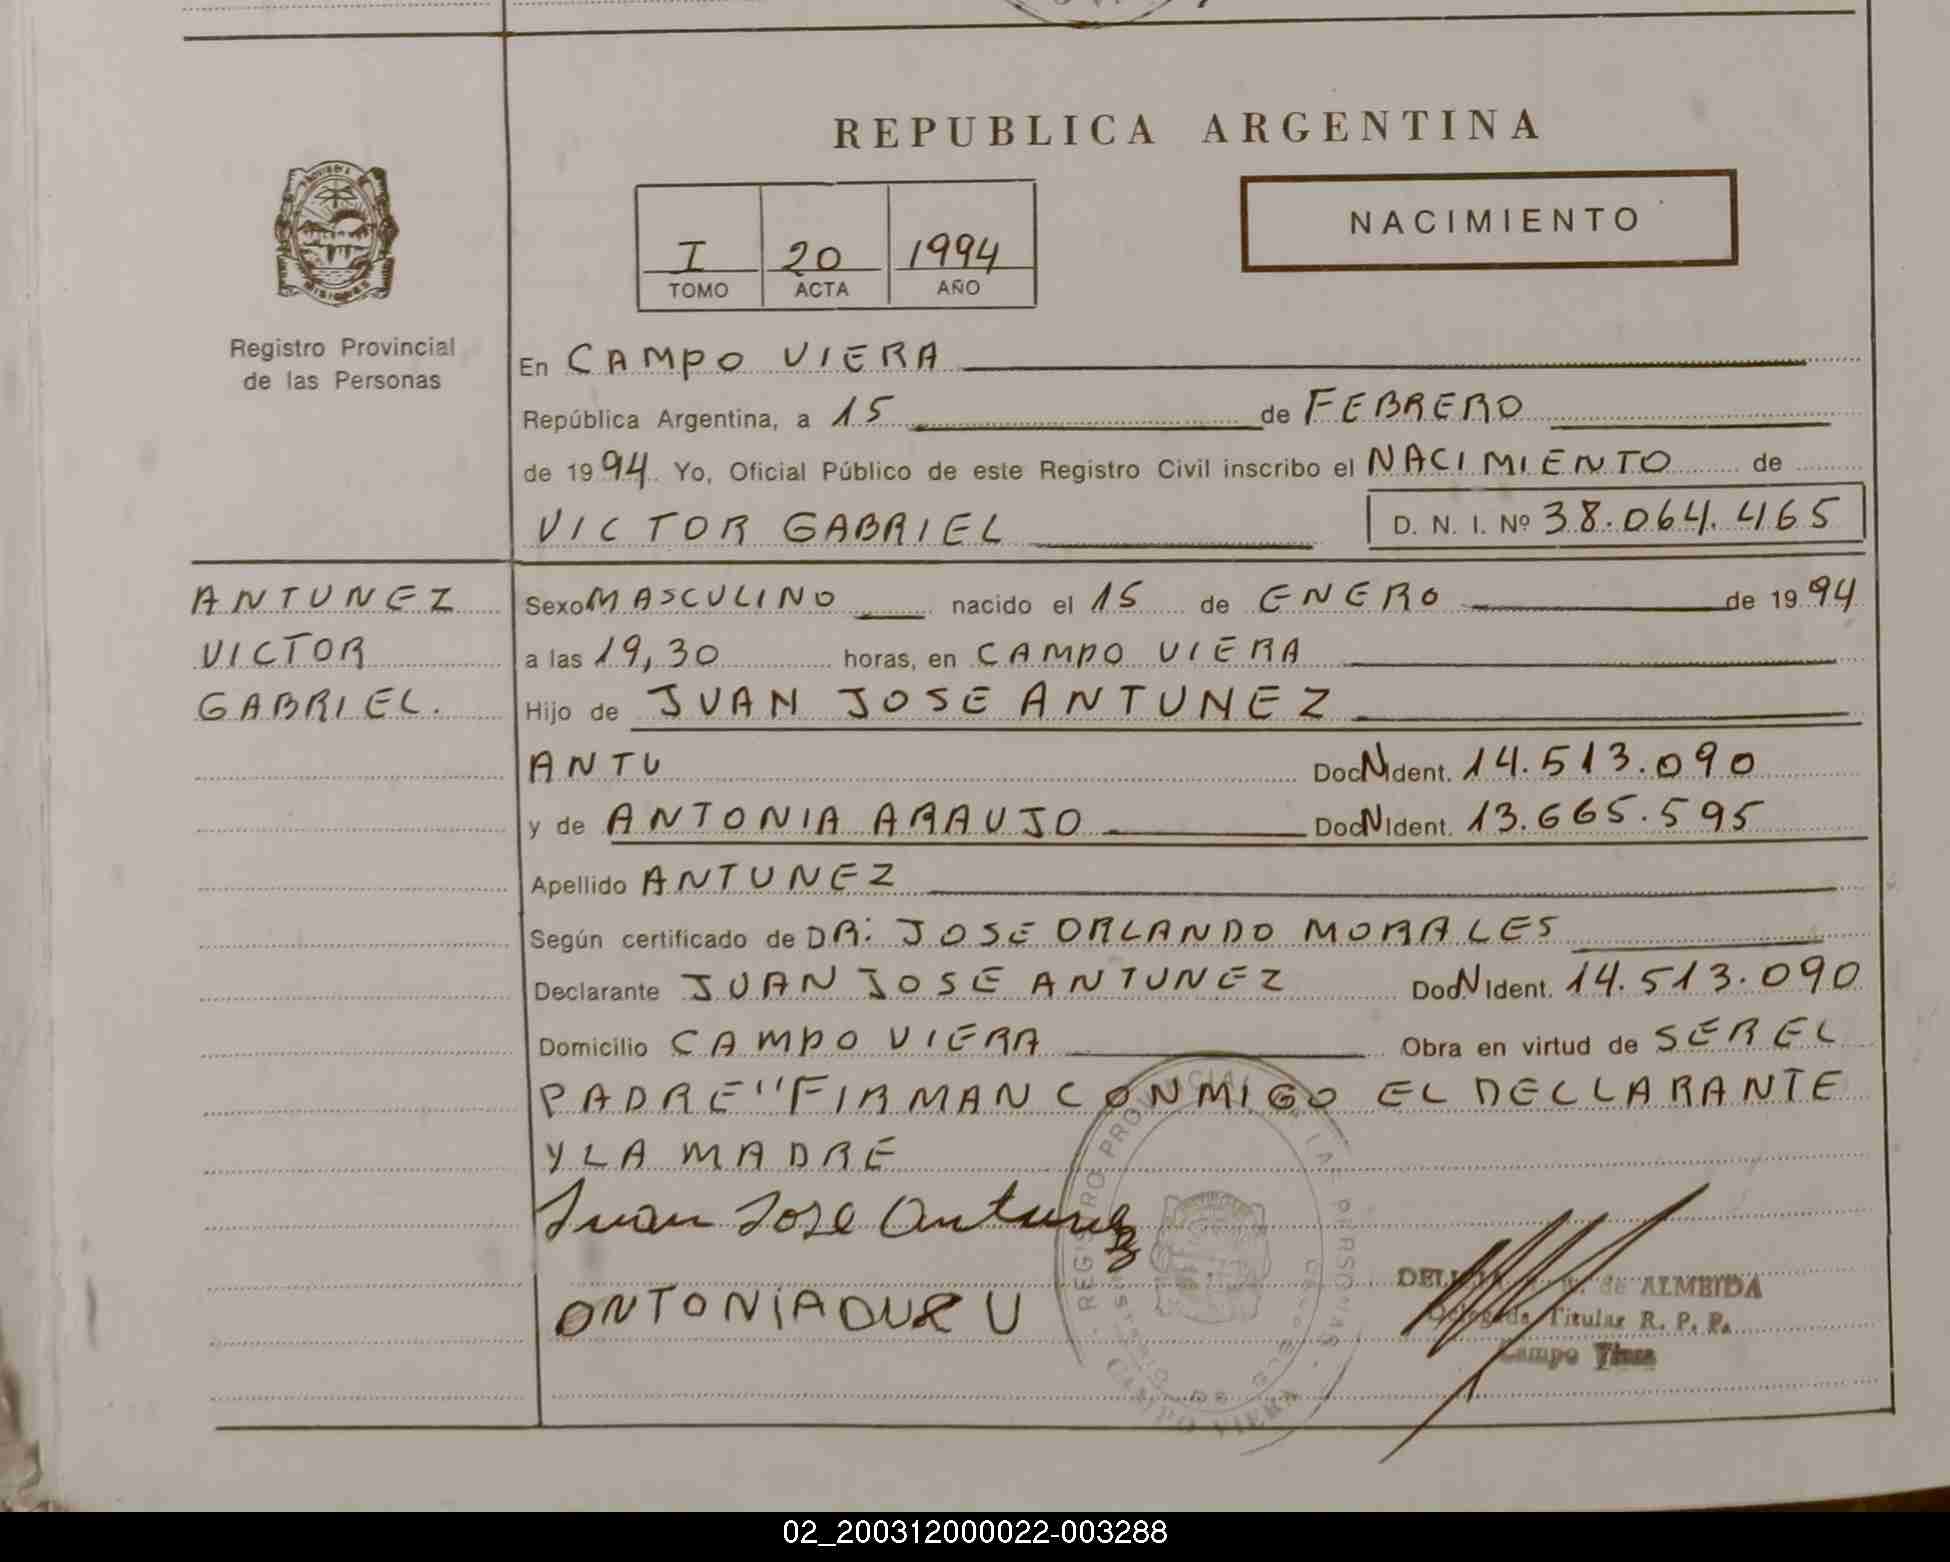 REPUBLICA ARGENTINA
NACIMIENTO
I 20 1994
TOMO ACTA AÑO
MISIONES
Registro Provincial
de las Personas
En CAMPO VIERA
República Argentina, a 15 de FEBRERO
de 1994. Yo, Oficial Público de este Registro Civil inscribo el NACIMIENTO de
VICTOR GABRIEL D. N. I. Nº 38.064.465
ANTUNEZ
VICTOR
GABRIEL.
Sexo MASCULINO nacido el 15 de ENERO de 1994
a las 19,30 horas, en CAMPO VIERA
Hijo de JUAN JOSE ANTUNEZ
ANTU Doc N Ident. 14.513.090
y de ANTONIA ARAUJO Doc N Ident. 13.665.595
Apellido ANTUNEZ
Según certificado de DR: JOSE ORLANDO MORALES
Declarante JUAN JOSE ANTUNEZ Doc N Ident. 14.513.090
Domicilio CAMPO VIERA Obra en virtud de SER EL
PADRE "FIRMAN CONMIGO EL DECLARANTE
Y LA MADRE
Juan Jose Antunez
REGISTRO PROVINCIAL DE LAS PERSONAS
CAMPO VIERA
de ALMEIDA
Delegada Titular R. P. P.
Campo Viera
02_200312000022-003288